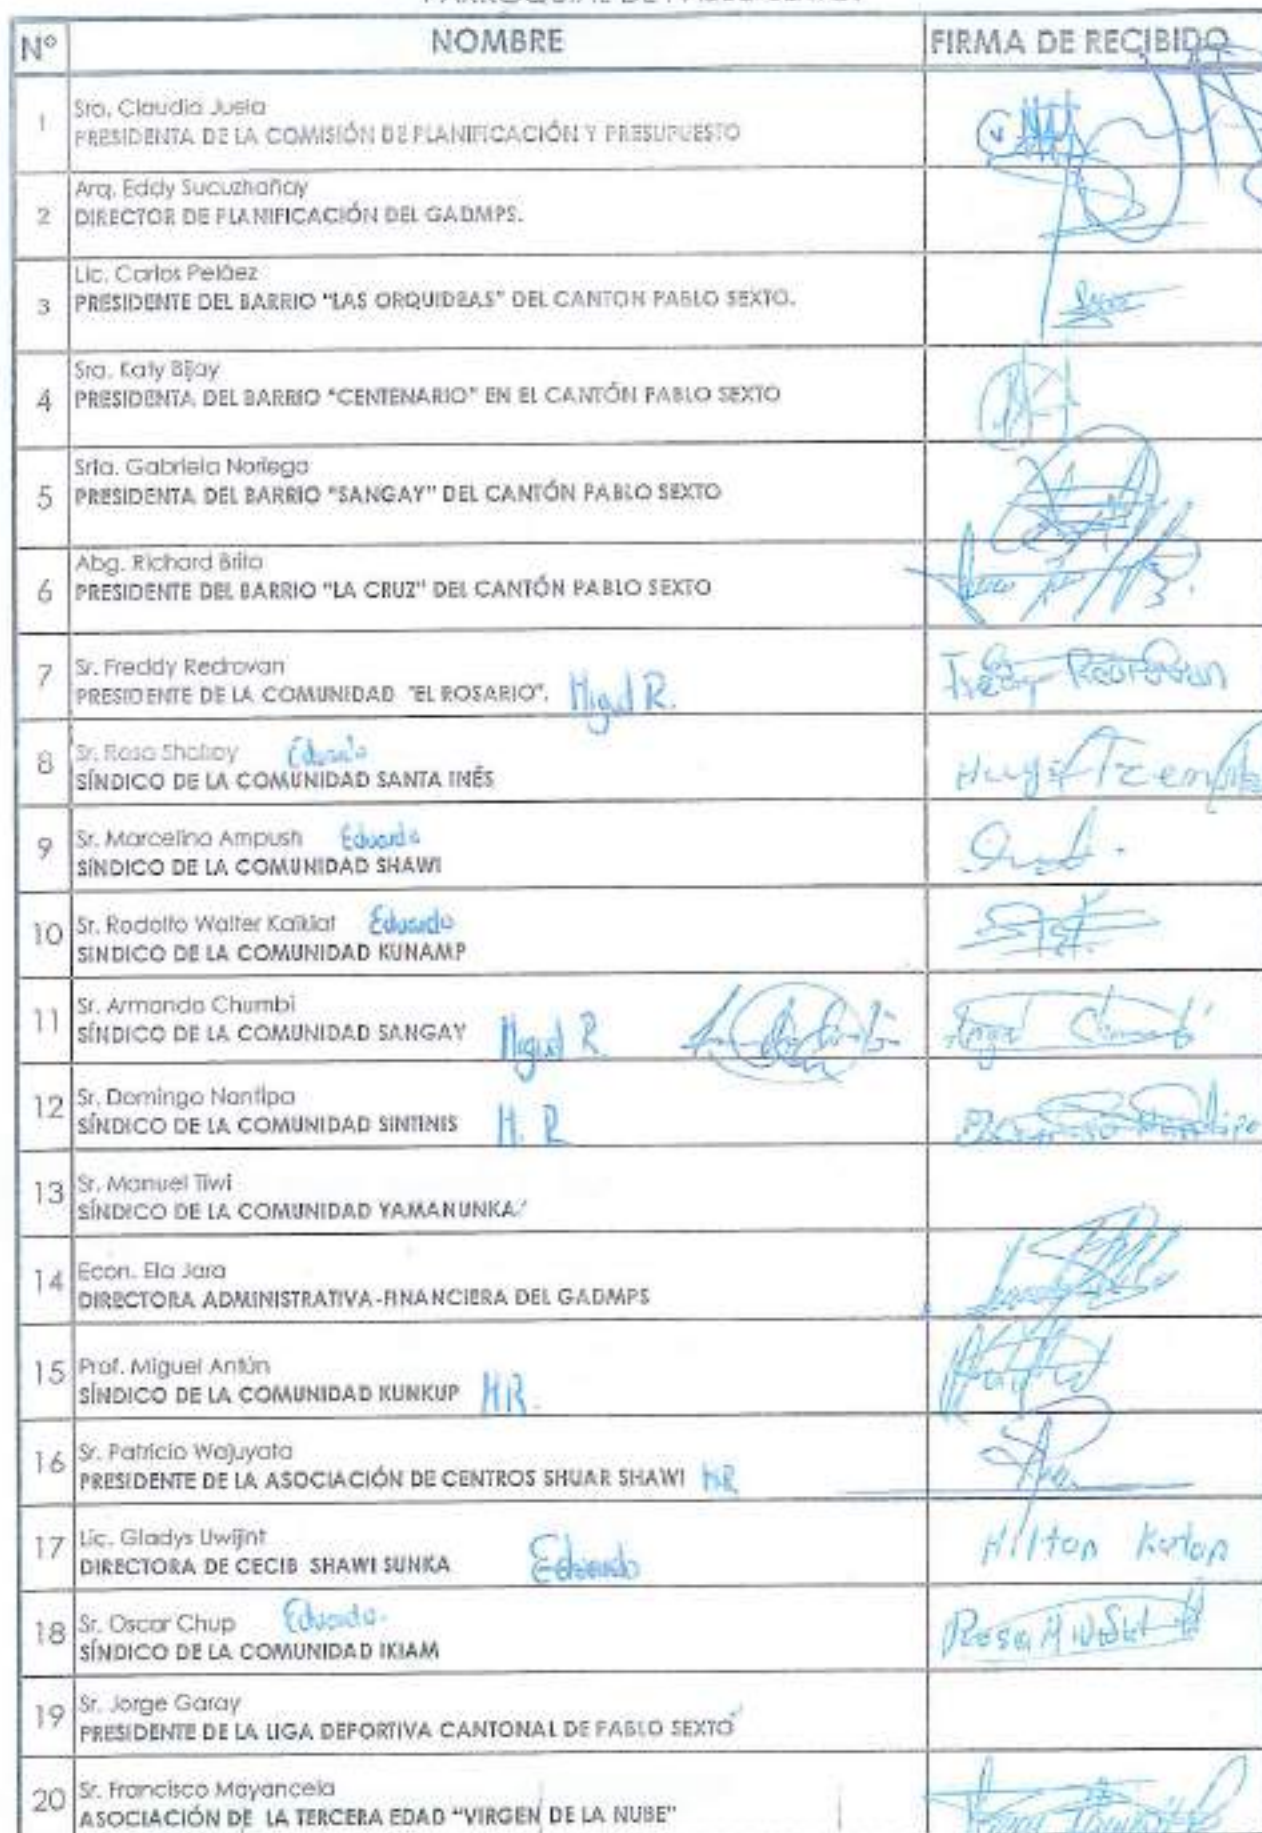 Nº NOMBRE FIRMA DE RECIBIDO
1 Sra. Claudia Juela
PRESIDENTA DE LA COMISIÓN DE PLANIFICACIÓN Y PRESUPUESTO
2 Arq. Eddy Sucuzhañay
DIRECTOR DE PLANIFICACIÓN DEL GADMPS.
3 Lic. Carlos Peláez
PRESIDENTE DEL BARRIO "LAS ORQUIDEAS" DEL CANTON PABLO SEXTO.
4 Sra. Katy Bijay
PRESIDENTA DEL BARRIO "CENTENARIO" EN EL CANTÓN PABLO SEXTO
5 Srta. Gabriela Noriega
PRESIDENTA DEL BARRIO "SANGAY" DEL CANTÓN PABLO SEXTO
6 Abg. Richard Brito
PRESIDENTE DEL BARRIO "LA CRUZ" DEL CANTÓN PABLO SEXTO
7 Sr. Freddy Redrovan
PRESIDENTE DE LA COMUNIDAD "EL ROSARIO". Miguel R.
8 Sr. Rosa Eduardo
SÍNDICO DE LA COMUNIDAD SANTA INÉS
9 Sr. Marcelino Ampush Eduardo
SÍNDICO DE LA COMUNIDAD SHAWI
10 Sr. Rodolfo Walter Kaikiat Eduardo
SINDICO DE LA COMUNIDAD KUNAMP
11 Sr. Armando Chumbi
SÍNDICO DE LA COMUNIDAD SANGAY Miguel R.
12 Sr. Domingo Nantipa
SÍNDICO DE LA COMUNIDAD SINTINIS M. R
13 Sr. Manuel Tiwi
SÍNDICO DE LA COMUNIDAD YAMANUNKA
14 Econ. Ela Jara
DIRECTORA ADMINISTRATIVA-FINANCIERA DEL GADMPS
15 Prof. Miguel Antún
SÍNDICO DE LA COMUNIDAD KUNKUP MR.
16 Sr. Patricio Wajuyata
PRESIDENTE DE LA ASOCIACIÓN DE CENTROS SHUAR SHAWI MR
17 Lic. Gladys Uwijint
DIRECTORA DE CECIB SHAWI SUNKA Eduardo
18 Sr. Oscar Chup Eduardo.
SÍNDICO DE LA COMUNIDAD IKIAM
19 Sr. Jorge Garay
PRESIDENTE DE LA LIGA DEPORTIVA CANTONAL DE PABLO SEXTO
20 Sr. Francisco Mayancela
ASOCIACIÓN DE LA TERCERA EDAD "VIRGEN DE LA NUBE"